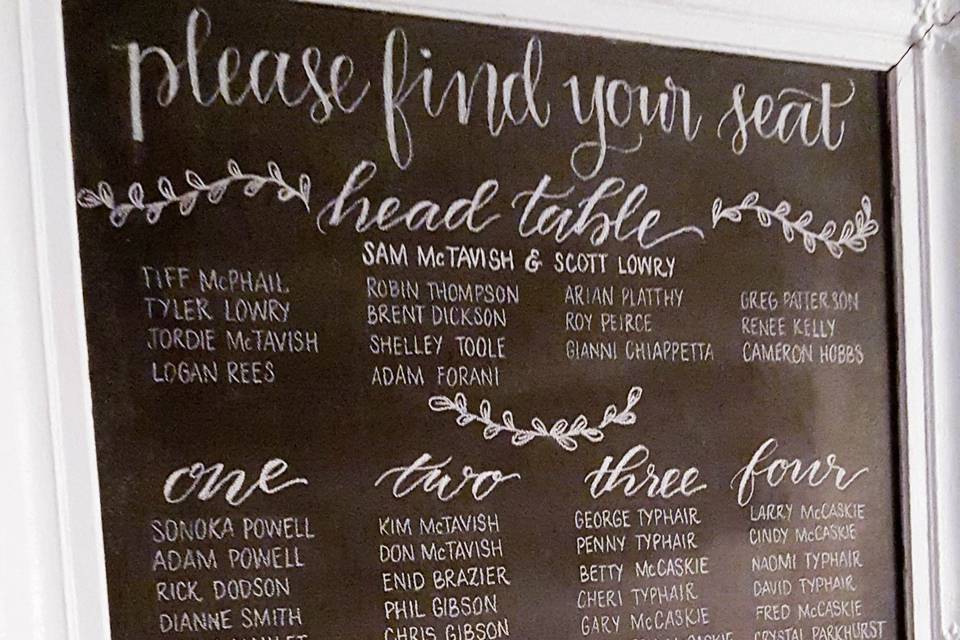 please find your seat
head table
SAM McTAVISH & SCOTT LOWRY
TIFF McPHAIL
TYLER LOWRY
JORDIE McTAVISH
LOGAN REES
ROBIN THOMPSON
BRENT DICKSON
SHELLEY TOOLE
ADAM FORANI
ARIAN PLATTHY
ROY PEIRCE
GIANNI CHIAPPETTA
GREG PATTERSON
RENEE KELLY
CAMERON HOBBS
one
SONOKA POWELL
ADAM POWELL
RICK DODSON
DIANNE SMITH
two
KIM McTAVISH
DON McTAVISH
ENID BRAZIER
PHIL GIBSON
CHRIS GIBSON
three
GEORGE TYPHAIR
PENNY TYPHAIR
BETTY McCASKIE
CHERI TYPHAIR
GARY McCASKIE
McCASKIE
four
LARRY McCASKIE
CINDY McCASKIE
NAOMI TYPHAIR
DAVID TYPHAIR
FRED McCASKIE
CRYSTAL PARKHURST